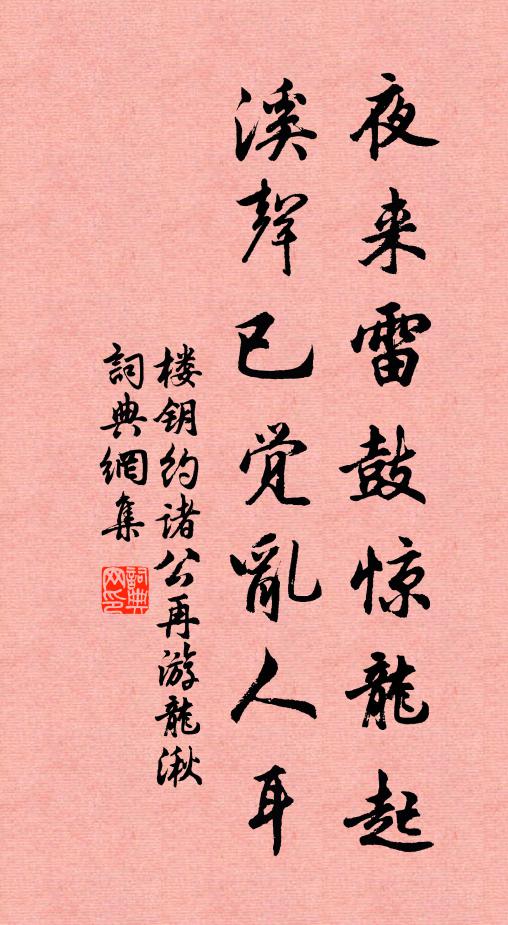 夜来雷鼓惊龍起
溪聲已觉亂人耳
楼钥约诸公再游龍湫
詞典網集
詞典网印